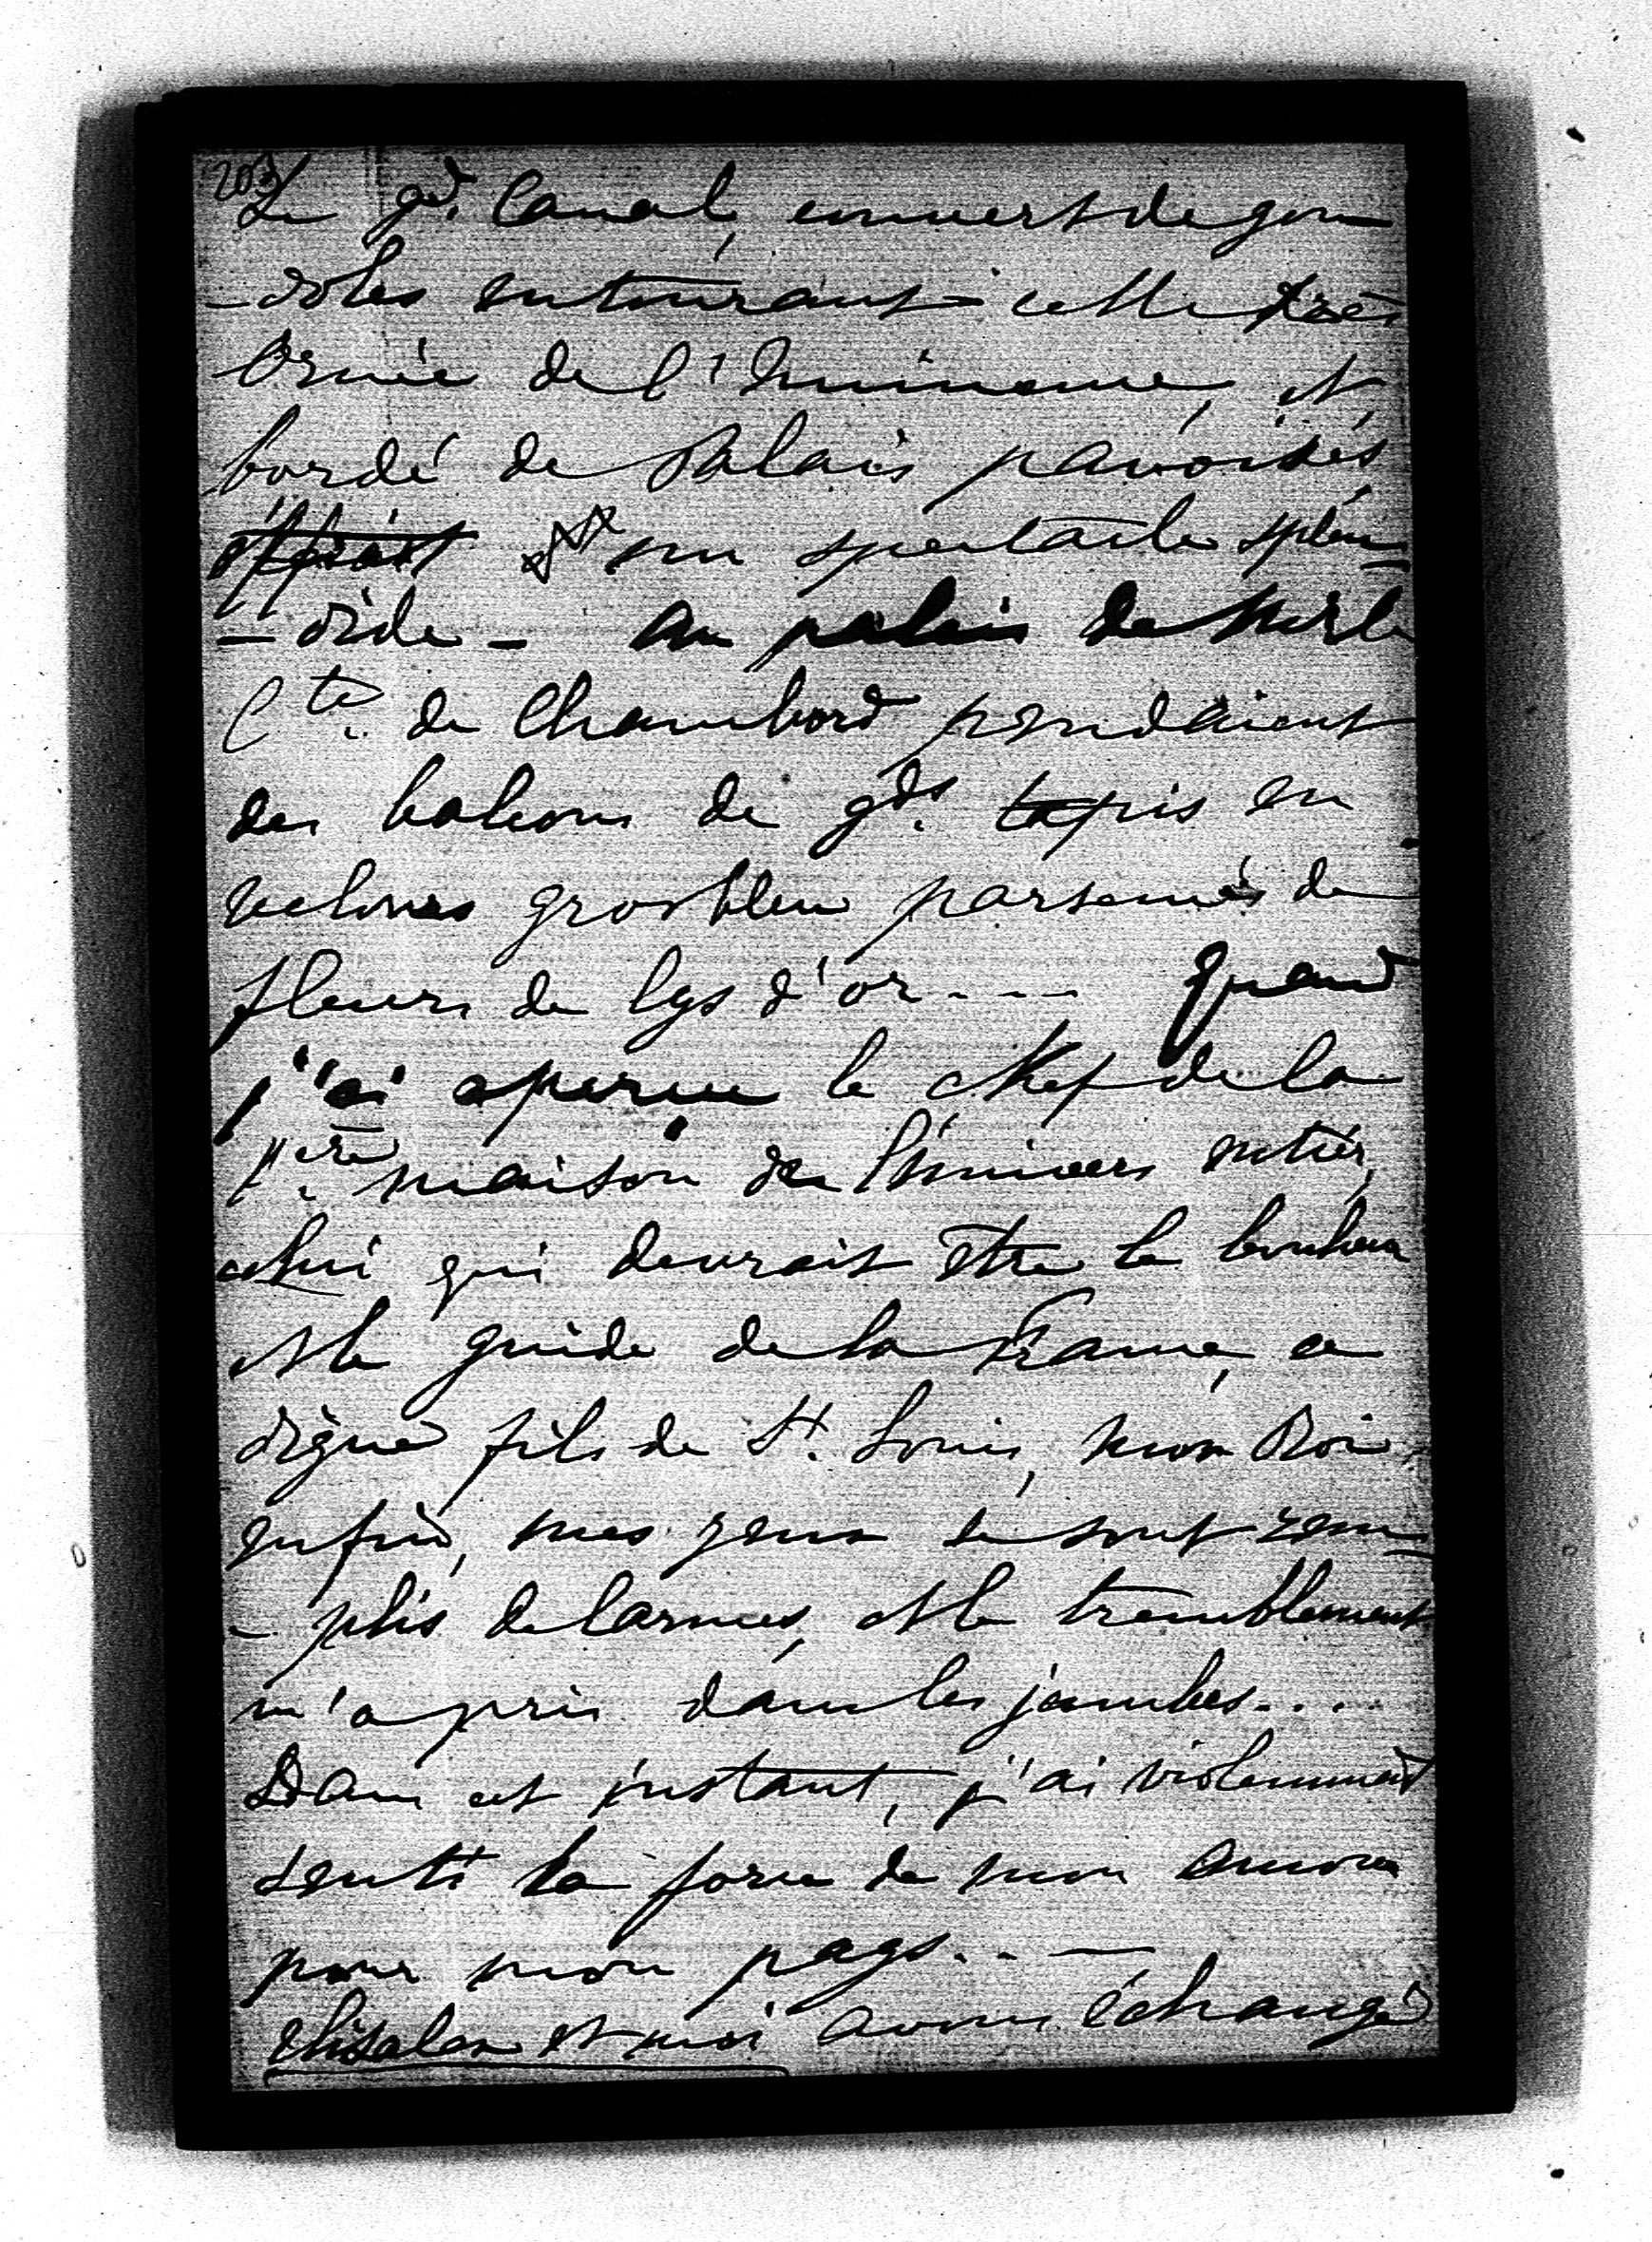 203
Le gd. Canal, couvert de gon
-doles entourant celle très
ornée de l'Immense, et
bordé de Palais pavoisés
offrait un spectacle splen-
-dide - au palais de Mr le
Cte. de Chambord pendaient
des balcons de gds. tapis en
velours gros bleu parsemés de
fleurs de lys d'or.... quand
j'ai aperçu le chef de la
1ère maison de l'univers entier,
celui qui devrait être le bonheur
et le guide de la France, ce
digne fils de St. Louis, mon Roi
enfin, mes yeux se sont rem-
-plis de larmes, et le tremblement
m'a pris dans les jambes....
Dans cet instant, j'ai violemment
senti la force de mon amour
pour mon pays.. —
et moi avons échangé